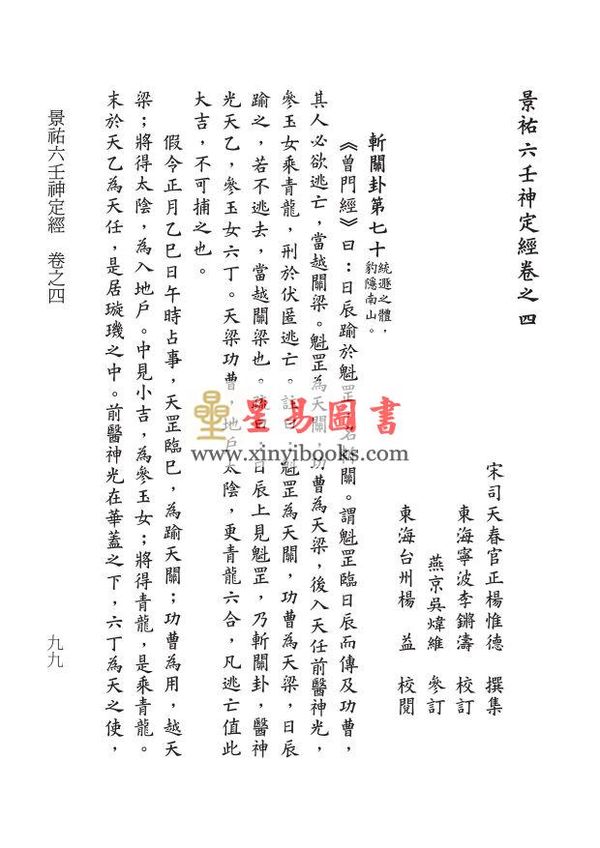 景祐六壬神定經卷之四
宋司天春官正楊惟德 撰集
東海寧波李鏘濤 校訂
燕京吳煒維 參訂
東海台州楊 益 校閱
斬關卦第七十 統遯之體,豹隱南山。
《曾門經》曰:日辰踰於魁罡,名斬關。謂魁罡臨日辰而傳及功曹,
其人必欲逃亡,當越關梁。魁罡為天關,功曹為天梁,後入天任前醫神光,
參玉女乘青龍,刑於伏匿逃亡。註曰:魁罡為天關,功曹為天梁,日辰
踰之,若不逃去,當越關梁也。疏曰:日辰上見魁罡,乃斬關卦,醫神
光天乙,參玉女六丁。天梁功曹,地戶太陰,更青龍六合,凡逃亡值此
大吉,不可捕之也。
假令正月乙巳日午時占事,天罡臨巳,為踰天關;功曹為用,越天
梁;將得太陰,為入地戶。中見小吉,為參玉女;將得青龍,是乘青龍。
末於天乙為天任,是居璇璣之中。前醫神光在華蓋之下,六丁為天之使,
景祐六壬神定經 卷之四
九九
星易圖書
www.xinyibooks.com